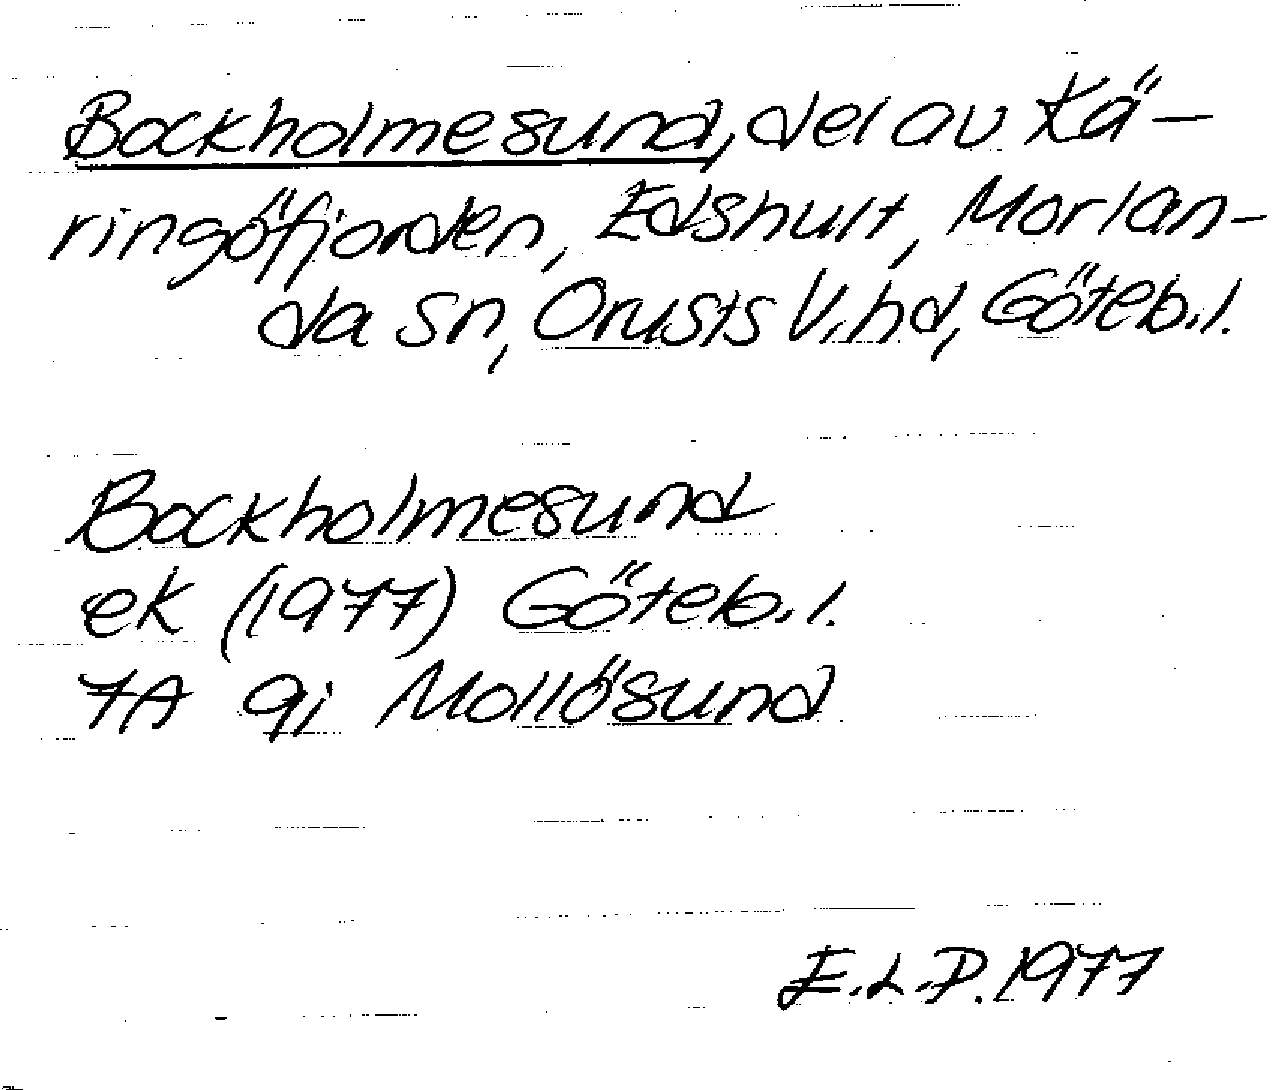 Bockholmesund, del av Kä-
ringöfjorden, Edshult, Morlan-
da sn, Orusts V. hd, Göteb. l.
Bockholmesund
ek (1977) Göteb. l.
7A 9i Mollösund
E.L.P. 1977